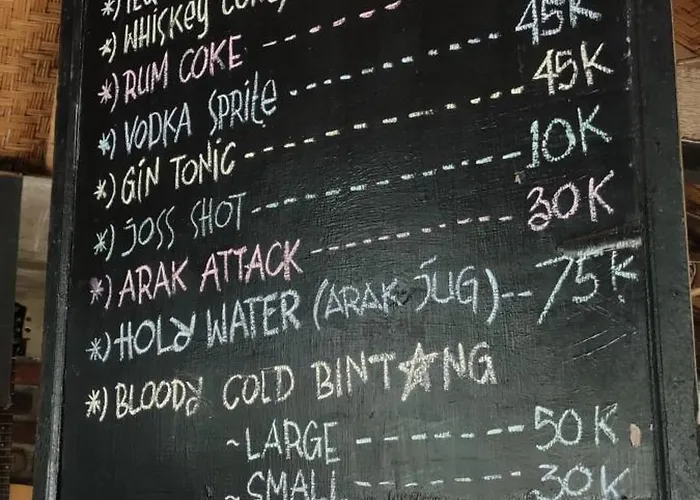 *) WHISKEY COKE
*) RUM COKE ---
*) VODKA SPRITE --- 45K
*) GIN TONIC --- 45K
*) JOSS SHOT --- 10K
*) ARAK ATTACK --- 30K
*) HOLY WATER (ARAK JUG) --- 75K
*) BLOODY COLD BINT★NG
~LARGE --- 50K
~SMALL --- 30K